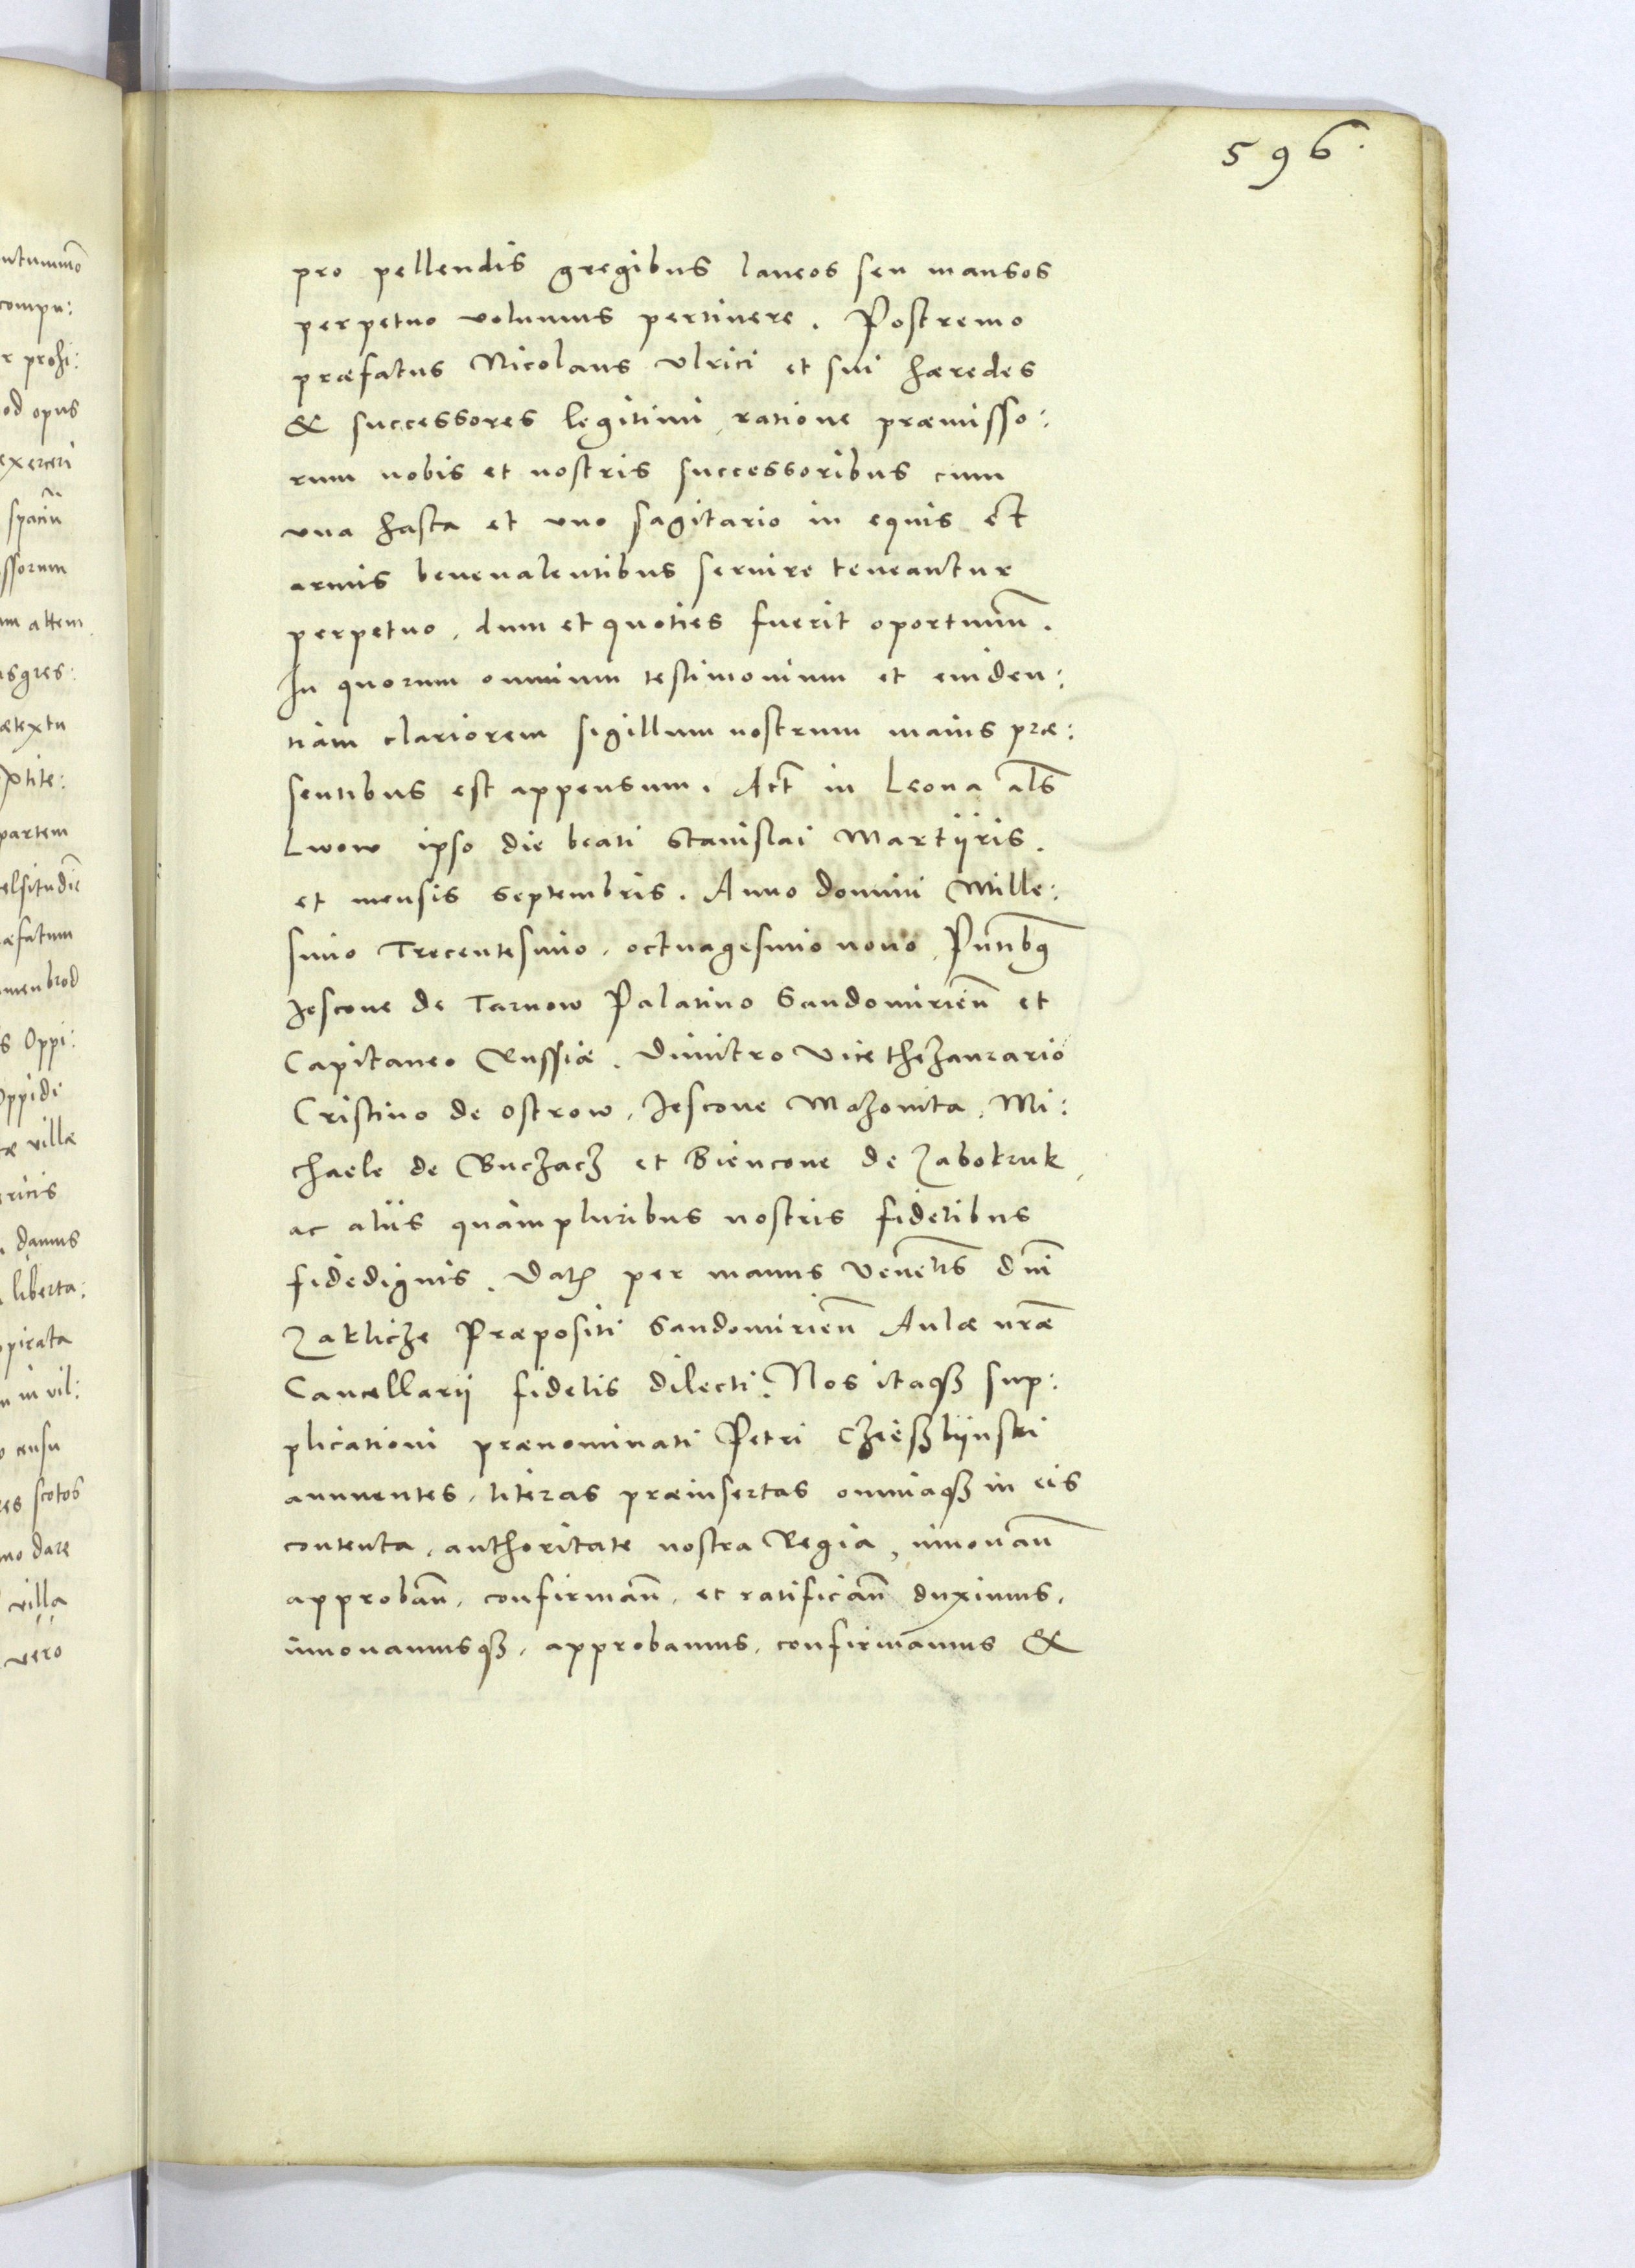 596.
pro pellendis gregibus laneos seu mansos
perpetuo volumus pertinere. Postremo
præfatus Nicolaus Vlrici et sui hæredes
& successores legitimi, ratione præmisso:
rum nobis et nostris successoribus cum
vna hasta et vno sagitario in equis et
armis beneualentibus seruire teneantur
perpetuo, dum et quoties fuerit oportunũ.
In quorum omnium testimonium et euiden:
tiam clariorem sigillum nostrum maius præ:
sentibus est appensum. Act̃ in Leona al̃s
Lwow ipso die beati Stanislai Martÿris.
et mensis Septembris. Anno domini Mille:
simo Trecentesimo, octuagesimo nono, Pñtibq̃
Jescone de Tarnow Palatino Sandomirieñ et
Capitaneo Russiæ. Dimitro Vicethezaurario
Cristino de Ostrow, Jescone Mazouita, Mi:
chaele de Buczacz et Biencone de Zabokruk,
ac aliis quampluribus nostris fidelibus
fidedignis. Datȝ per manus Veneñlis dñi
Zaklicze Præpositi Sandomirieñ Aulæ nr̃æ
Cancellarii fidelis dilecti. Nos itaqȝ sup:
plicationi prænominati Petri Czieszlÿnski
annuentes, literas præinsertas omniaqȝ in eis
contenta, authoritate nostra Regia, innouañ
approbañ, confirmañ, et ratificañ duximus,
innouamusqȝ, approbamus, confirmamus &
ntummo᷃
compu:
r prohi:
od opus
exerceri
spaciũ
ssorum
um attem
nsgres:
ætextu
partem
elsitudiẽ
æfatum
menbrod
s Oppi:
Oppidi
æ villæ
ricis
damus
liberta:
pirata
n in vil:
censu
es scotos
mo dare
villa
vero